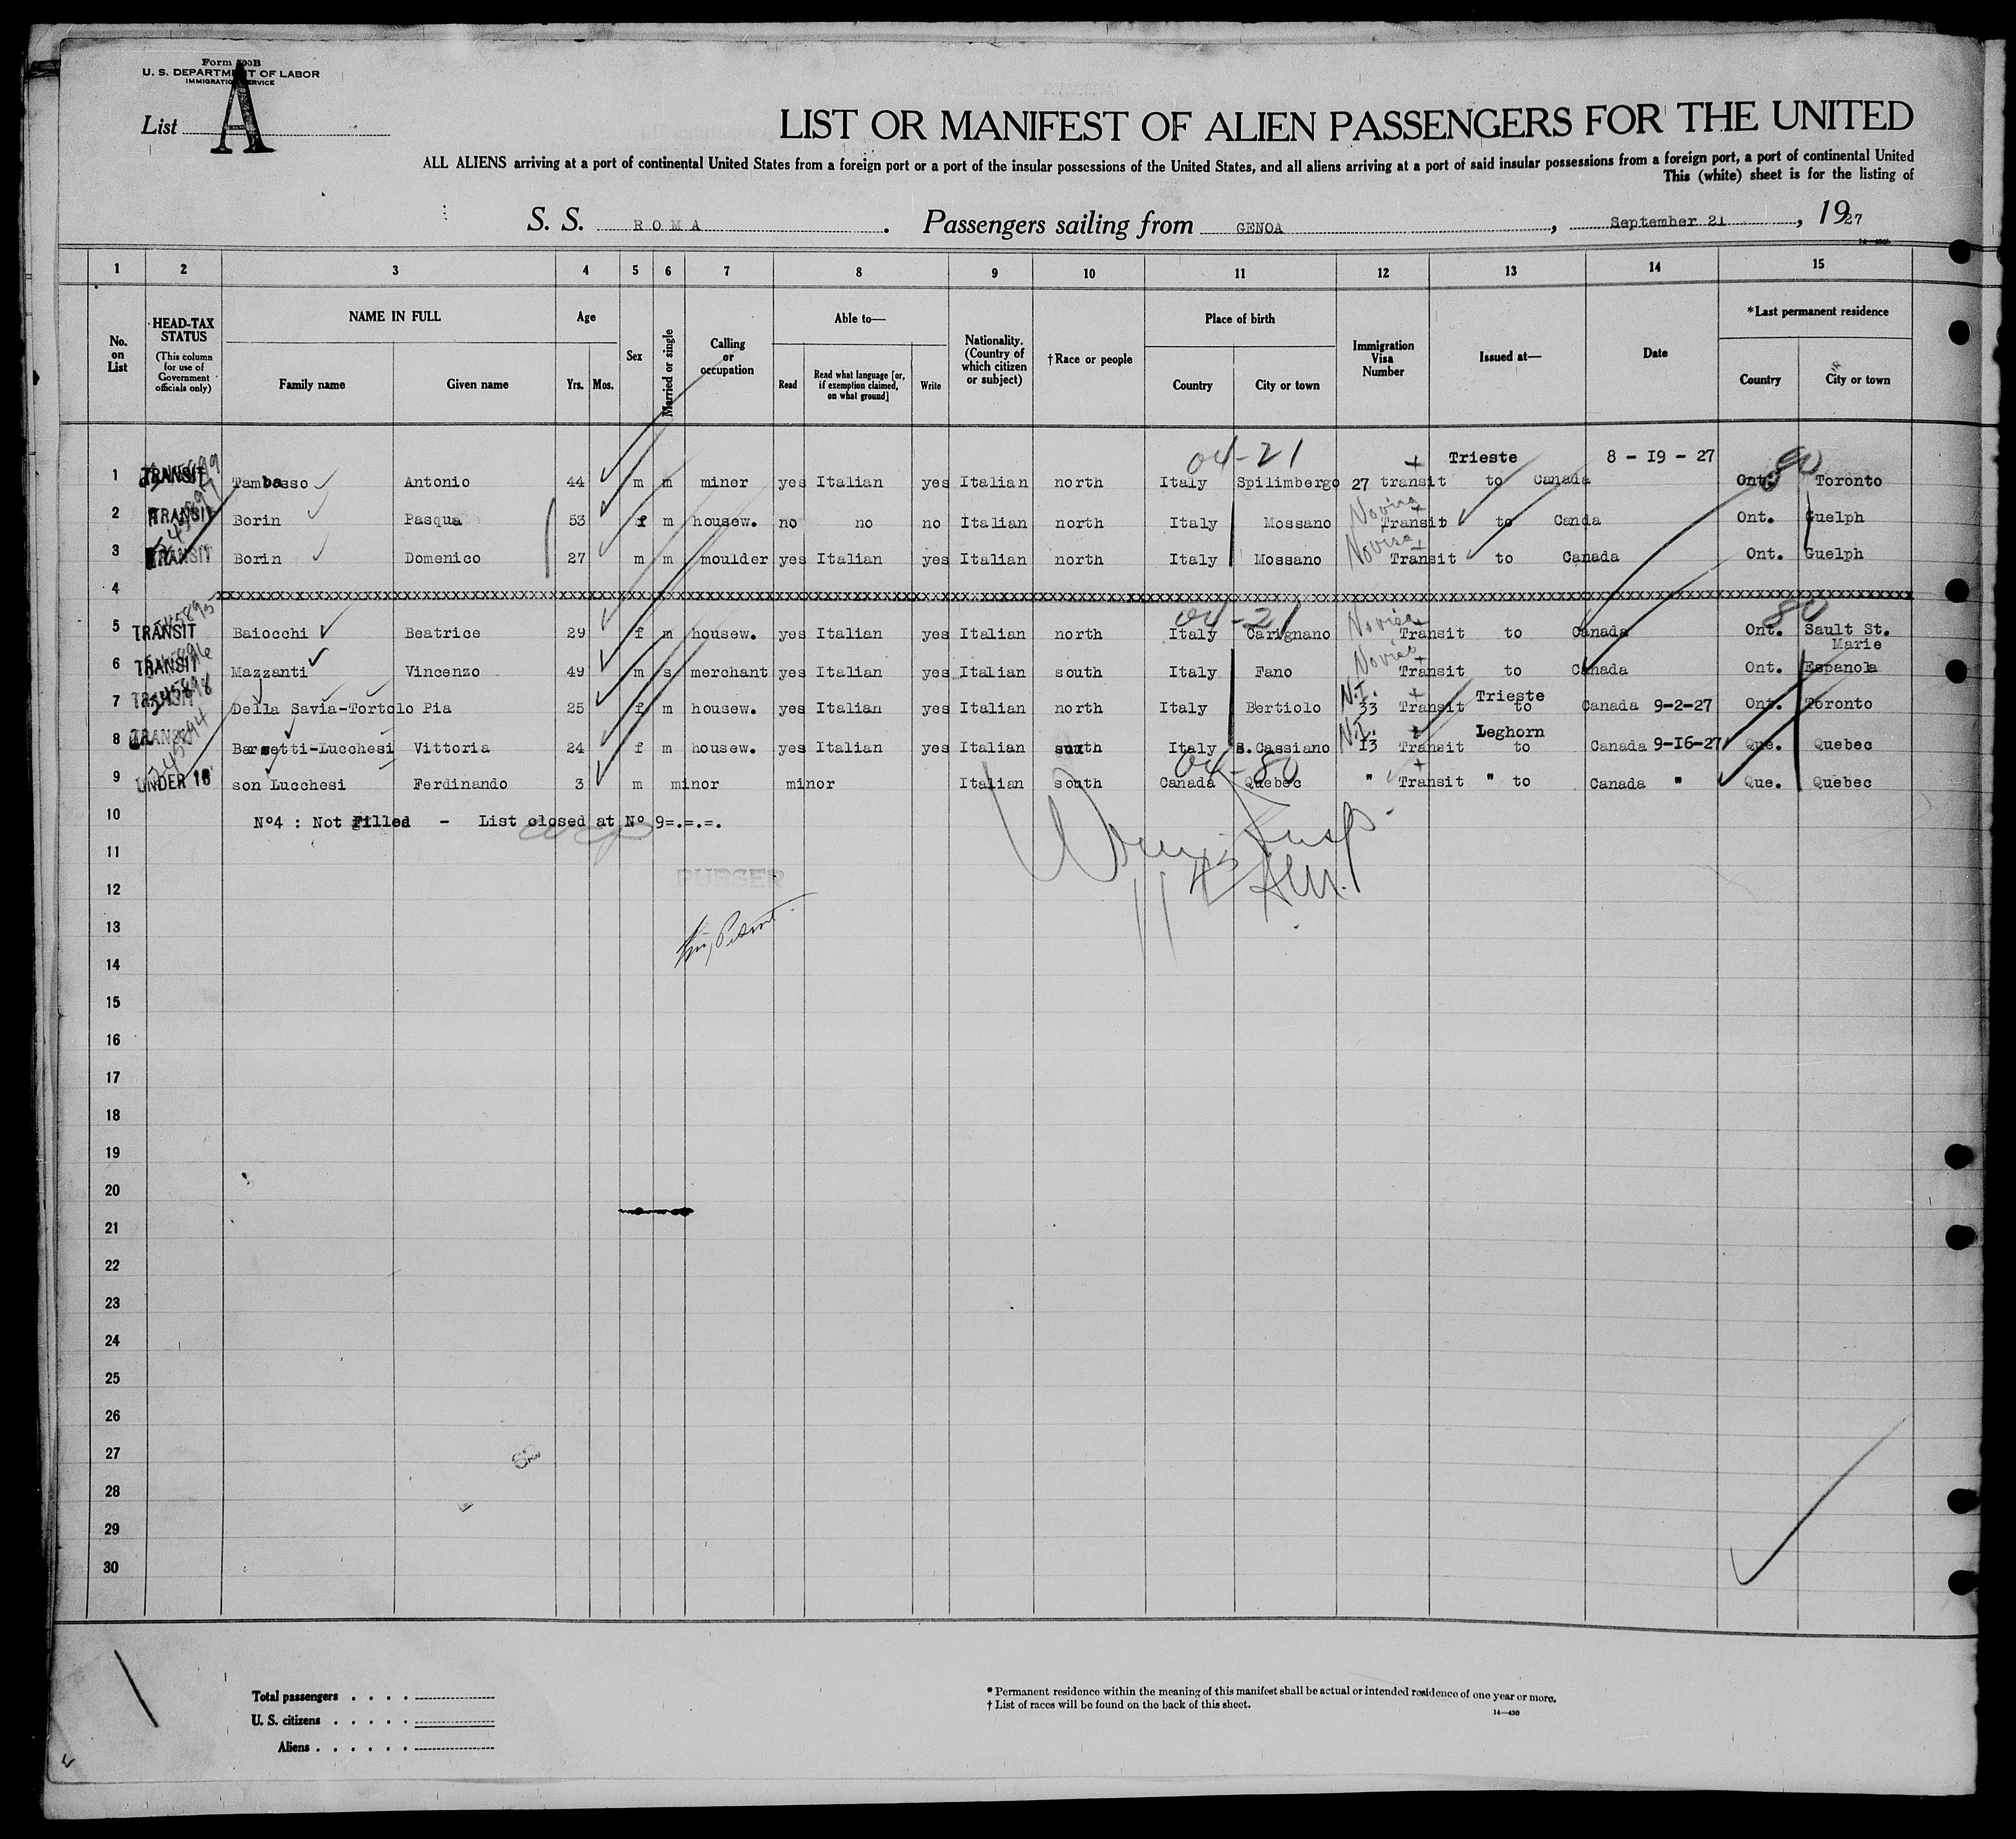 Form 500B
U. S. DEPARTMENT OF LABOR
IMMIGRATION SERVICE
List A
LIST OR MANIFEST OF ALIEN PASSENGERS FOR THE UNITED
ALL ALIENS arriving at a port of continental United States from a foreign port or a port of the insular possessions of the United States, and all aliens arriving at a port of said insular possessions from a foreign port, a port of continental United
This (white) sheet is for the listing of
S. S. ROMA. Passengers sailing from GENOA, September 21, 1927
1 2 3 4 5 6 7 8 9 10 11 12 13 14 15
No. on List
HEAD-TAX STATUS (This column for use of Government officials only)
NAME IN FULL
Family name Given name
Age
Yrs. Mos.
Sex
Married or single
Calling or occupation
Able to—
Read Read what language [or, if exemption claimed, on what ground] Write
Nationality. (Country of which citizen or subject)
†Race or people
Place of birth
Country City or town
Immigration Visa Number
Issued at—
Date
*Last permanent residence
Country City or town
04-21 Trieste 8 - I9 - 27
1 TRANSIT Tambosso Antonio 44 m m miner yes Italian yes Italian north Italy Spilimbergo 27 transit to Canada Ont. Toronto
2 TRANSIT Borin Pasqua 53 f m housew. no no no Italian north Italy Mossano No visa Transit to Canda Ont. Guelph
3 TRANSIT Borin Domenico 27 m m moulder yes Italian yes Italian north Italy Mossano No visa Transit to Canada Ont. Guelph
4
04-21 80
5 TRANSIT Baiocchi Beatrice 29 f m housew. yes Italian yes Italian north Italy Carignano No visa Transit to Canada Ont. Sault St. Marie
6 TRANSIT Mazzanti Vincenzo 49 m s merchant yes Italian yes Italian south Italy Fano No visa Transit to Canada Ont. Espanola
7 TRANSIT Della Savia-Tortolo Pia 25 f m housew. yes Italian yes Italian north Italy Bertiolo N.I. 33 Transit Trieste to Canada 9-2-27 Ont. Toronto
8 TRANSIT Barsetti-Lucchesi Vittoria 24 f m housew. yes Italian yes Italian south Italy S. Cassiano N.I. I3 Transit Leghorn to Canada 9-I6-27 Que. Quebec
04-80
9 UNDER 16 son Lucchesi Ferdinando 3 m minor minor Italian south Canada Quebec " Transit " to Canada " Que. Quebec
10 Nº4 : Not Filled - List closed at Nº 9=.=.=.
11
12 PURSER
13
14
15
16
17
18
19
20
21
22
23
24
25
26
27
28
29
30
Total passengers . . . .
U. S. citizens . . . . .
Aliens . . . . . .
* Permanent residence within the meaning of this manifest shall be actual or intended residence of one year or more.
† List of races will be found on the back of this sheet.
14—430